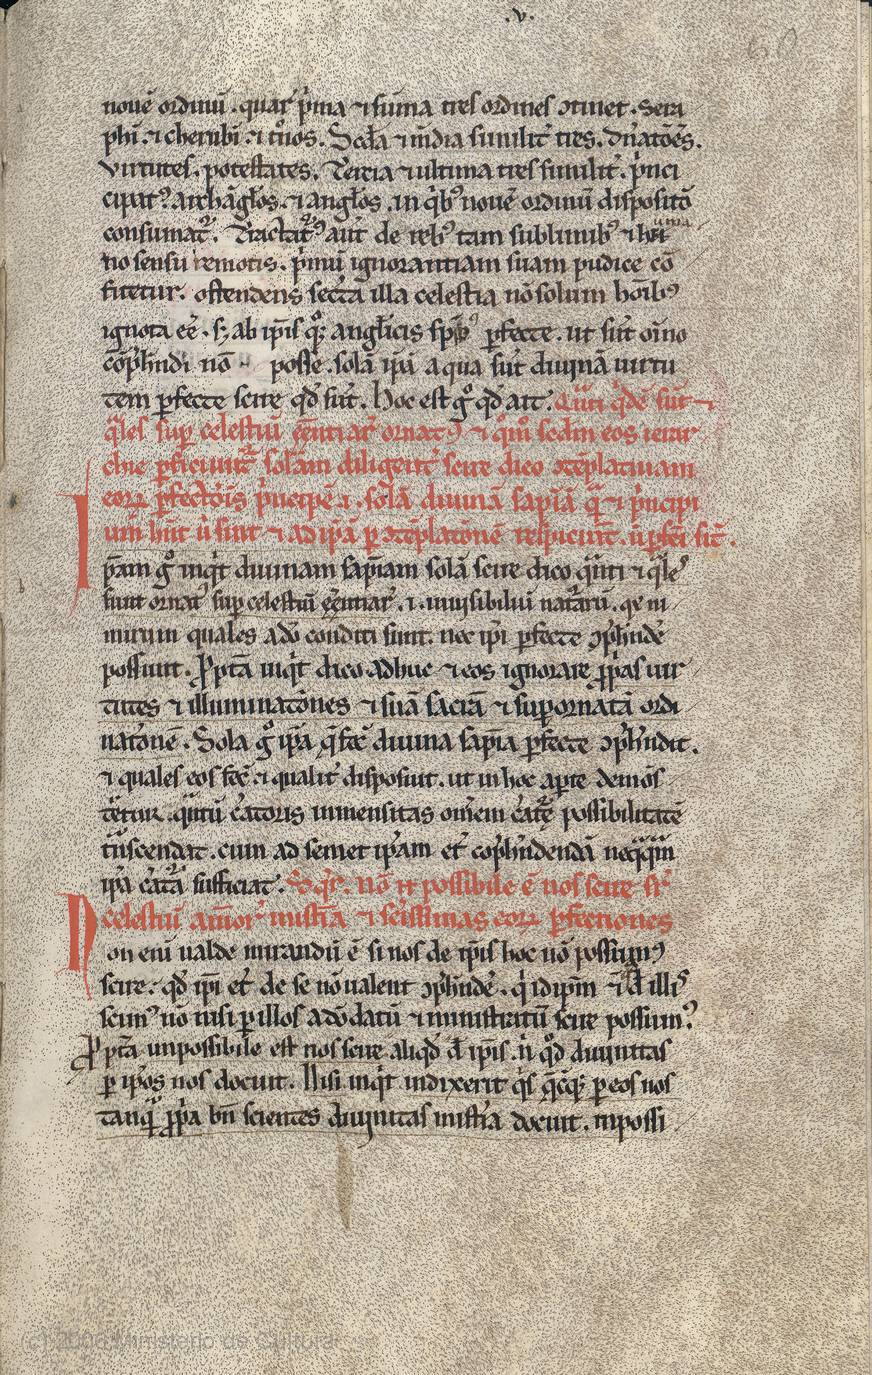 .v.
60
nouē ordinū . quaꝝ p̾ma ⁊ sūma tres ordines ↄtinet . Sera
phī . ⁊ cherubī . ⁊ t̾nos . Scd̄a ⁊ m̄dia similit̾ tres . dn̄atōēs .
virtutes . potestates . Tercia ⁊ ultima tres similit̾ . p̾nci
cipat⁹ . archāgl̄os . ⁊ angl̄os . in q̾b⁹ nouē ordinū dispositō
consumat̾ . Tractat̾⁹ aut̄ de reb⁹ tam sublimib⁹ ⁊ huma
no sensu remotis . p̾mū ignorantiam suam pudice cō
fitetur . ostendens sec̾ta illa celestia nō solum hōib⁹
ignota eē . s; ab ip̄is q̊ꝫ anglicis sp̄ib⁹ ꝑfecte . ut sūt oīno
cōp̾hndi nō posse . solā ip̄ā a qua sūt diuinā uirtu
tem ꝑfecte scire qd̄ sūt . Hoc est g̊ qd̄ ait . Quāti q̾dē sūt ⁊
q̄les sup celestiū eēntiaꝝ ornat⁹ ⁊ q̊m̊ scdm eos ierar
chie ꝑficiunt̾ solam diligent̾ scire dico ↄtēplatiuam
eoꝝ ꝑfectōis p̾ncipē .i. solā diuinā sapīā
um hn̄t ut sint ⁊ ad ip̄ā ꝑ ↄtēplatōnē respiciunt . ut ꝑfc̄i sīt .
Ip̄am g̊ inq̾t diuinam sapīam solā scire dico q̾nti ⁊ q̄les
sunt ornat⁹ sup celestiū eēntiaꝝ .i. inuisibiliū nat̾arū . q̄ ni
mirum quales a dō conditi sunt . nec ip̄i ꝑfecte ↄp̾hndē
possunt . Ꝓpt̾a inq̾t dico adhuc ⁊ eos ignorare ꝓp̾as uir
tutes ⁊ illuminatōnes ⁊ suā sacrā ⁊ supornatā ordi
natōnē . Sola g̊ ip̄a q̄ fec̄ diuina sapīa ꝑfecte ↄp̾hndit .
⁊ quales eos fec̄ ⁊ qualit̾ disposuit . ut in hoc aꝑte demōs
tretur . q̾ntū c̾atoris inmensitas omīem c̾at̾e possibilitatē
t̾nscendat . cum ad semet ip̄am et̄ cōp̾hndendā neq̾q̾m
ip̄a c̾at̾a sufficiat . Seq̾t̾ . Nō .n. possibile ē nos scire sup
celestiū aīmoꝝ mistīa ⁊ scīssimas eoꝝ ꝑfectiones
Non eni ualde mirandū ē si nos de ip̄is hoc nō possum⁹
scire . qd̄ ip̄i et̄ de se nō ualent ↄp̾hndē . q̾ id ip̄m qd̄ de illis
scim⁹ nō nisi ꝑ illos a dō datū ⁊ ministratū scire possum⁹
Ꝓpt̾a inpossibile est nos scire aliqd̄ d̄ ip̄is . n̄ q̊d diuinitas
ꝑ ip̄os nos docuit . Nisi inq̾t indixerit q̾s q̄cūqꝫ ꝑ eos nos
tanq̾ ꝓp̾a bn̄ scientes diuinitas mist̾ia docuit . inpossi
(c) 2006 Ministerio de Cultura